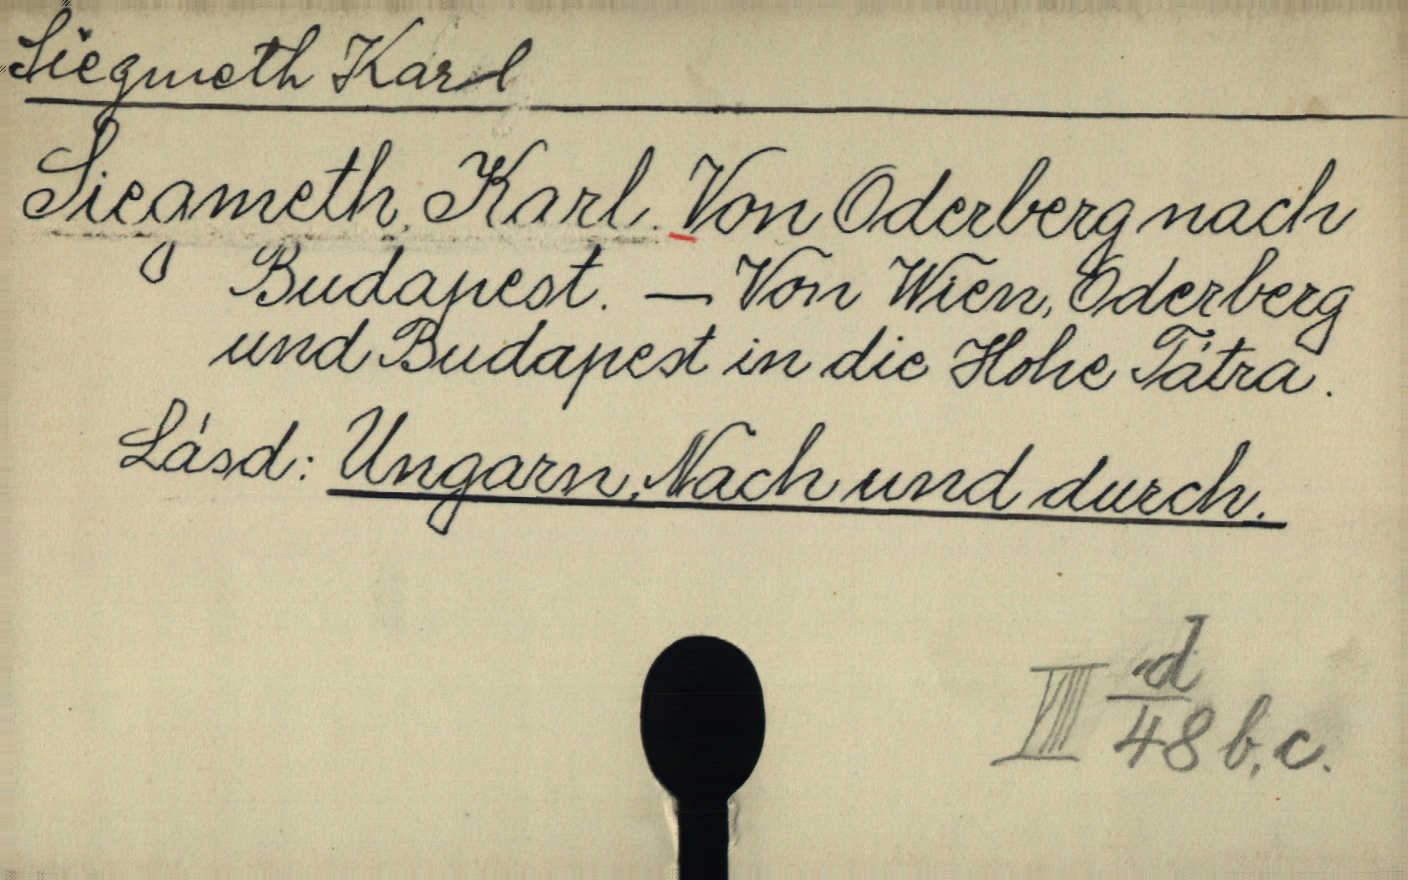 Siegmeth Karl
Siegmeth, Karl. Von Oderberg nach
Budapest. — Von Wien, Oderberg
und Budapest in die Hohe Tátra.
Lásd: Ungarn, Nach und durch.
III d/48 b, c.